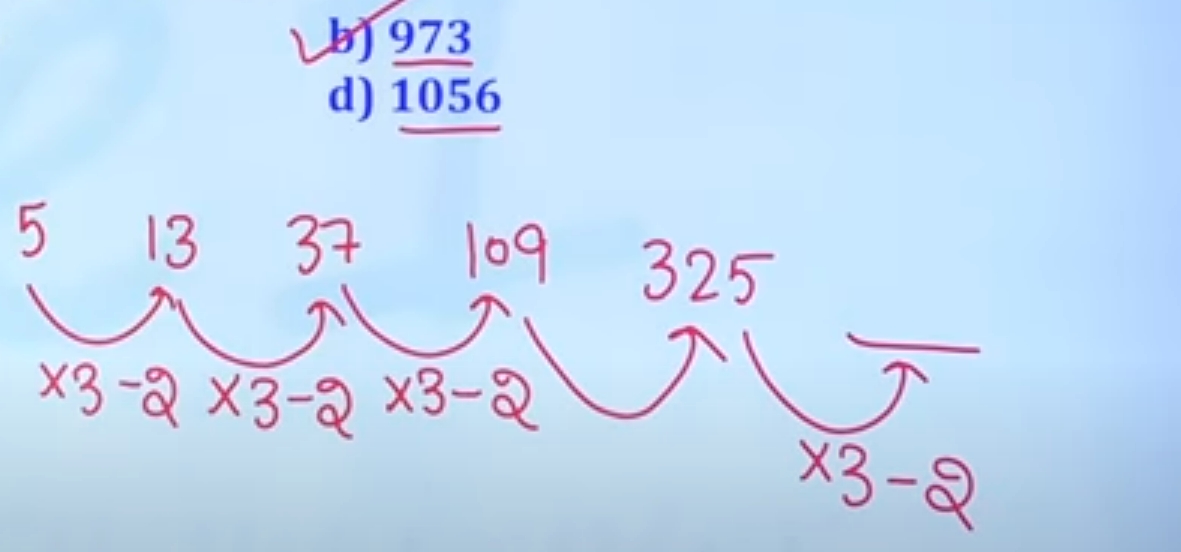 b) 973
d) 1056
5 13 37 109 325
×3-2 ×3-2 ×3-2
×3-2